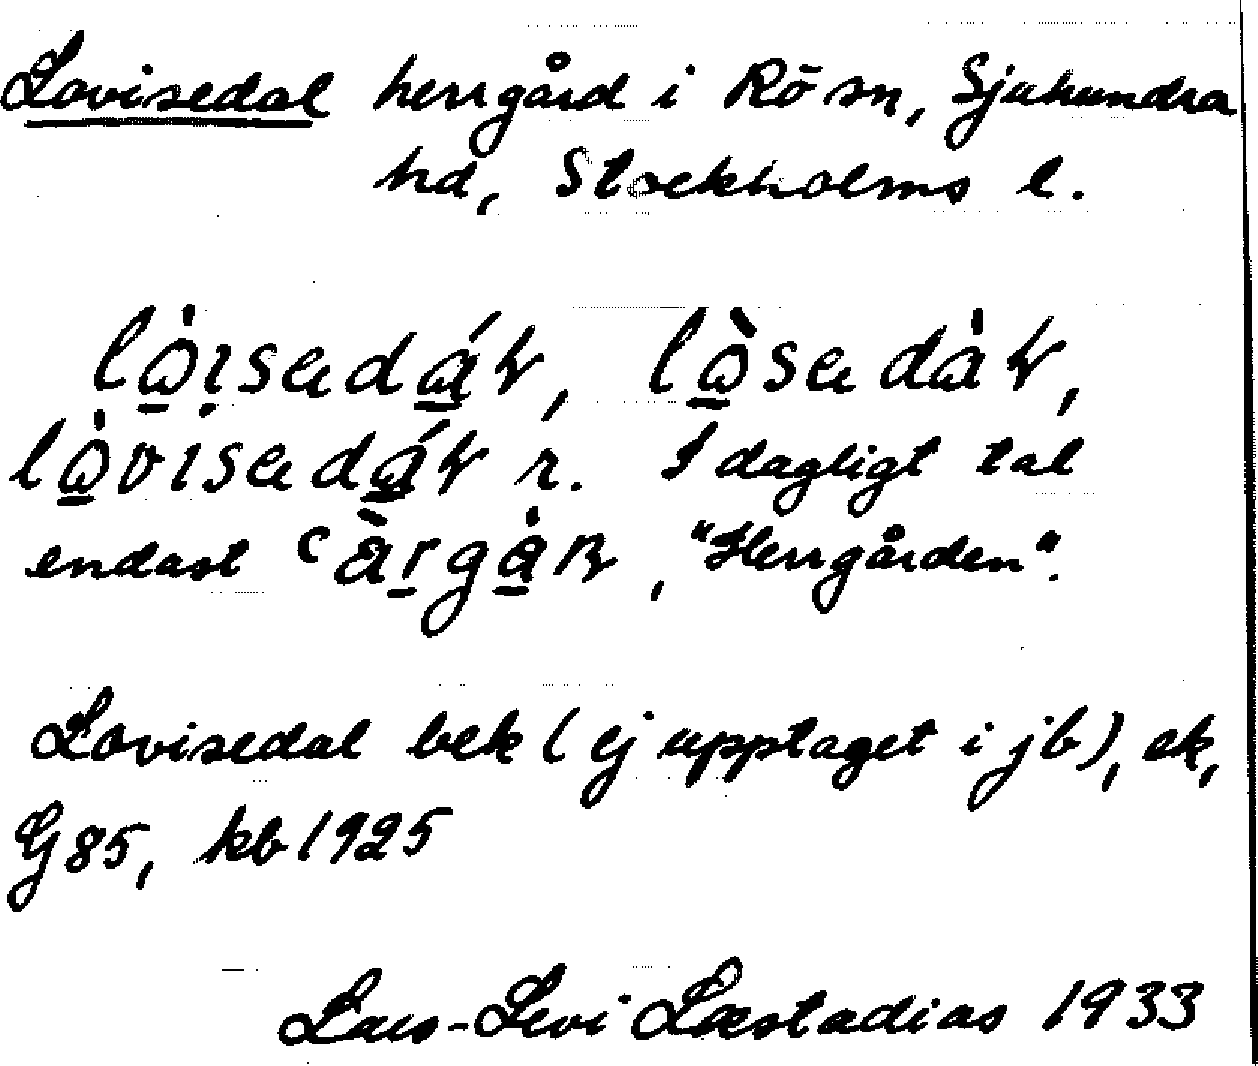 Lovisedal herrgård i Rö sn, Sjuhundra
hd, Stockholms l.
r. I dagligt tal
endast , "Herrgården".
Lovisedal bek (ej upptaget i jb), ek,
G 85, kb 1925
Lars-Levi Læstadius 1933